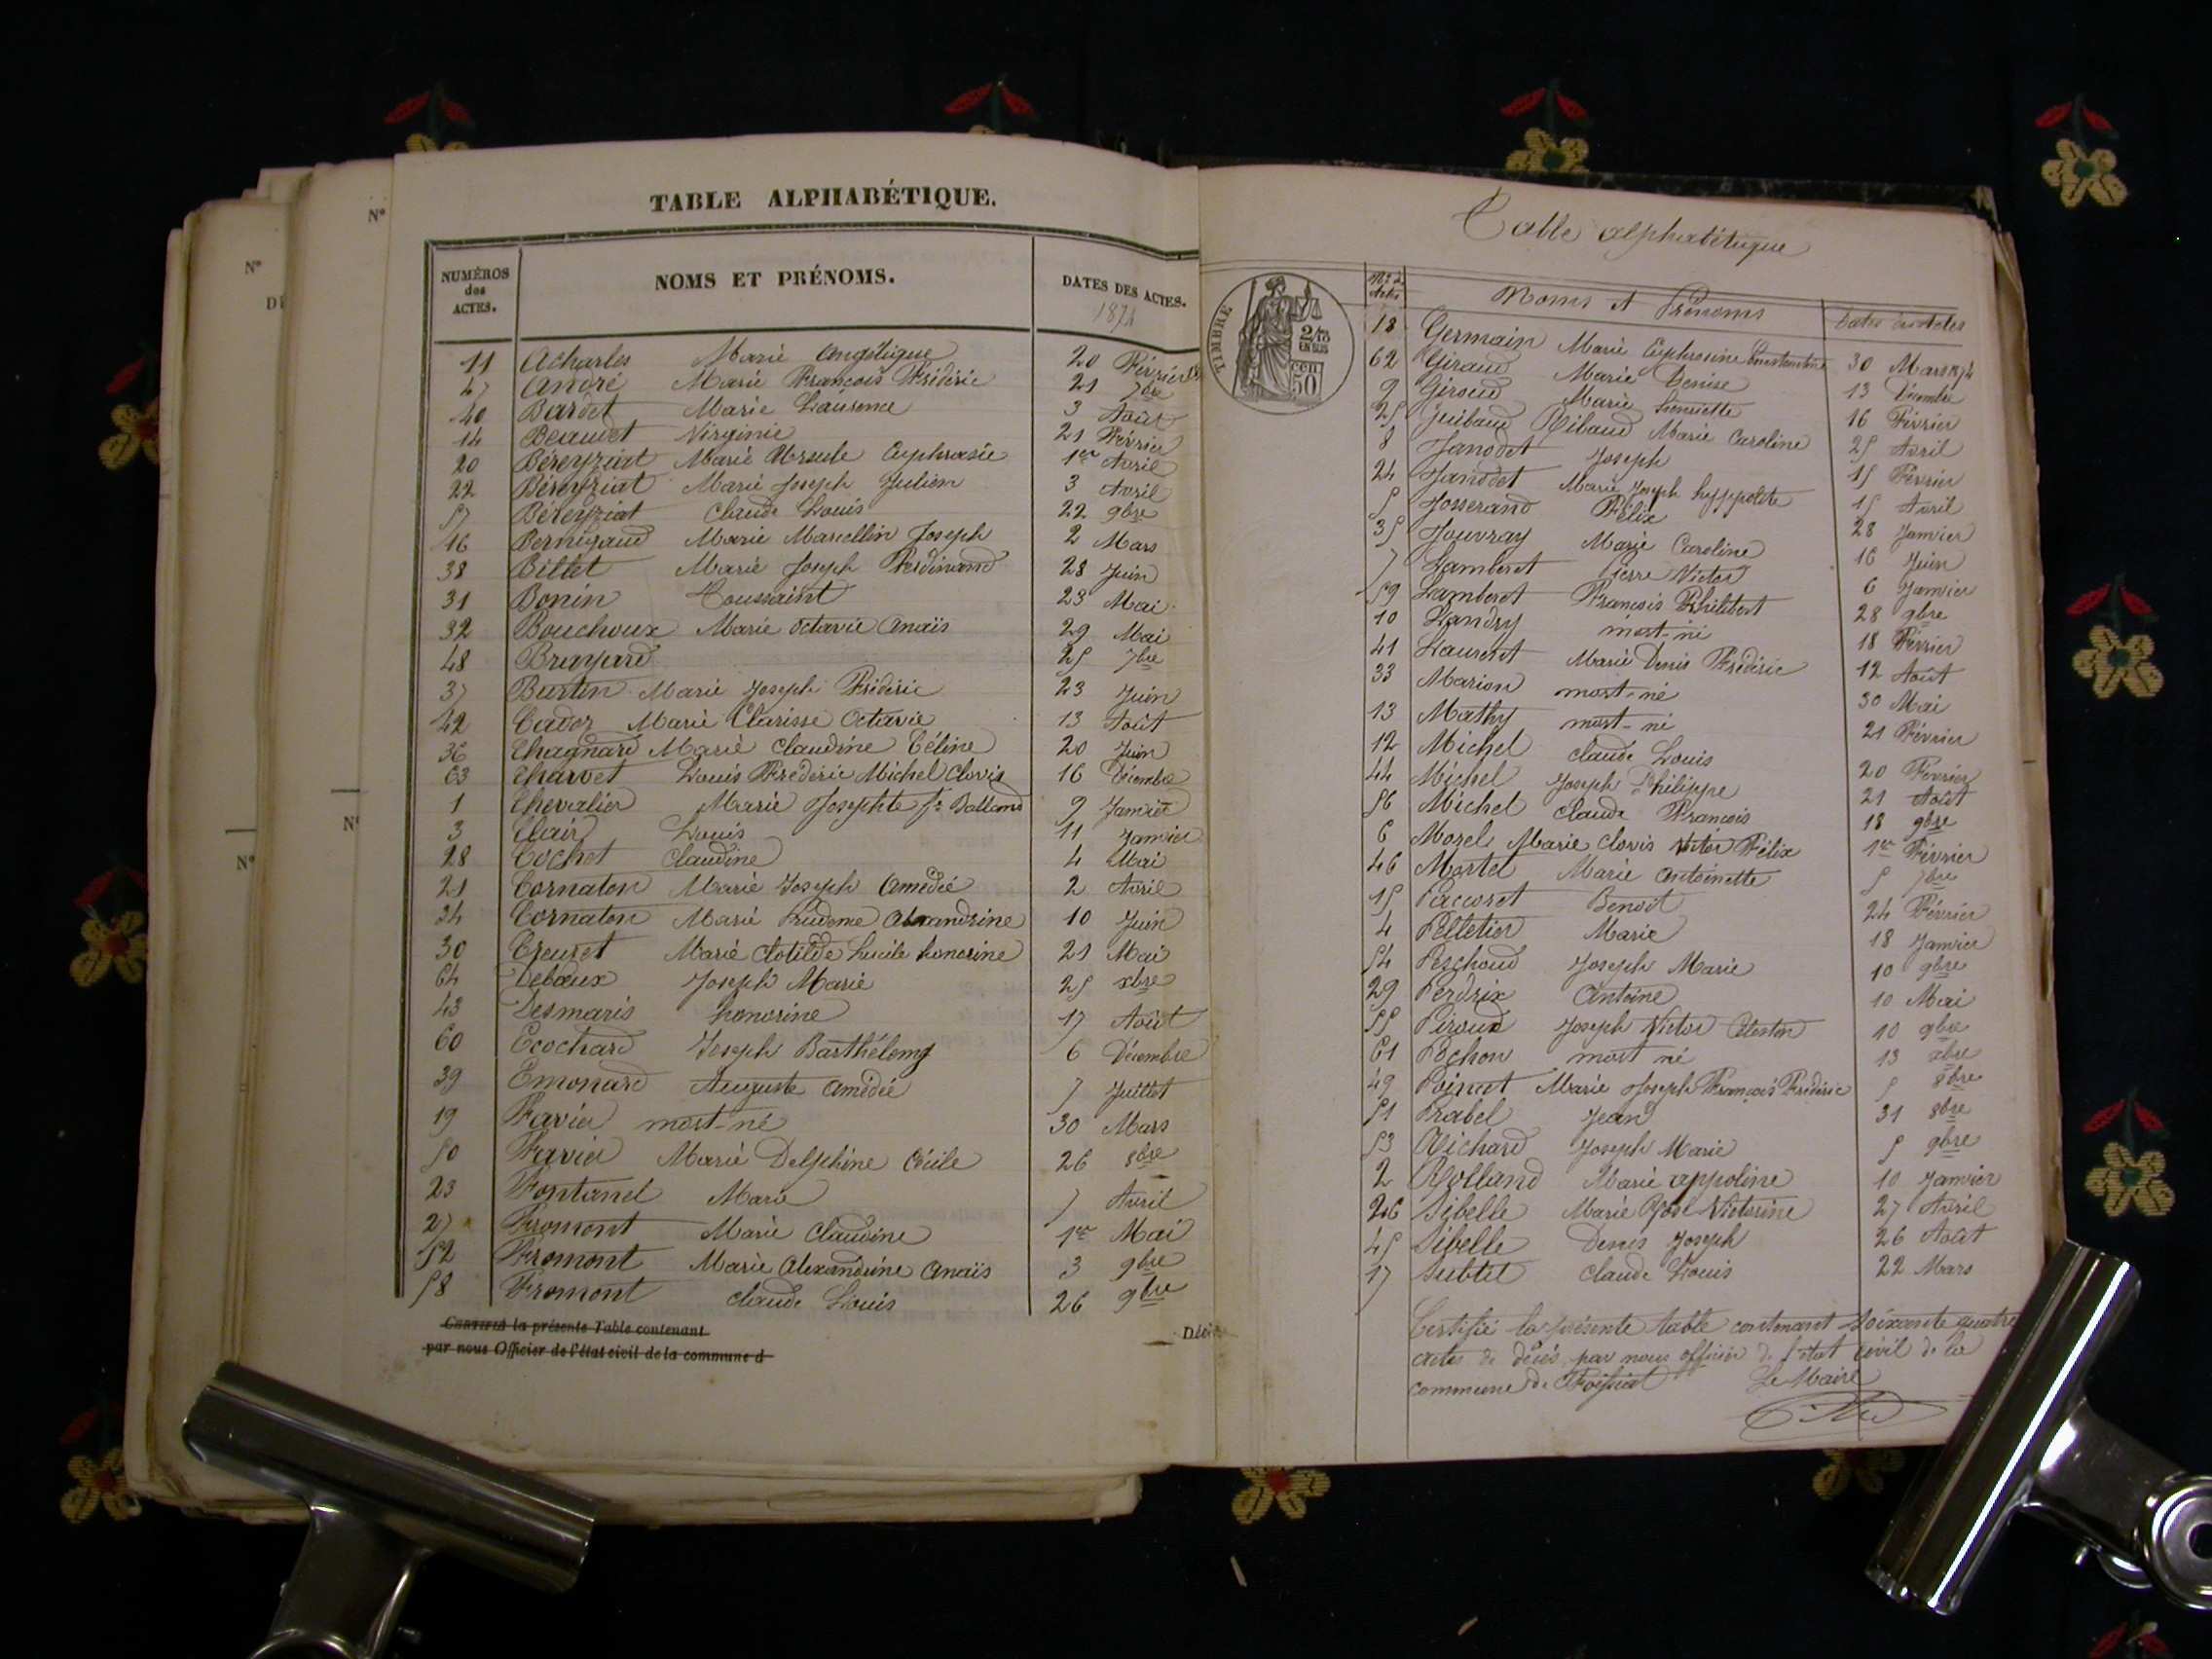 Nº
Nº
Nº
Nº
TABLE ALPHABÉTIQUE.
NUMÉROS des ACTES.
NOMS ET PRÉNOMS.
DATES DES ACTES.
11 Acharles Marie Angélique 20 Février
47 André Marie François Frédéric 21 7bre
40 Bardet Marie Laurence 3 Août
14 Beaudet Virginie 21 Février
20 Béreyziat Marie Ursule Euphrasie 1er Avril
22 Béreyziat Marie Joseph Julien 3 Avril
57 Béreyziat Claude Louis 22 9bre
16 Bernigaud Marie Marcellin Joseph 2 Mars
38 Billet Marie Joseph Ferdinand 28 Juin
31 Bonin Toussaint 23 Mai
32 Bouchoux Marie Octavie Anaïs 29 Mai
48 Brayard 25 7bre
37 Burtin Marie Joseph Frédéric 23 Juin
42 Cadoz Marie Clarisse Octavie 13 Août
36 Chagnard Marie Claudine Céline 20 Juin
63 Charvet Louis Frédéric Michel Clovis 16 Décembre
1 Chevalier Marie Josephte 9 Janvier
3 Clair Louis 11 Janvier
28 Cochet Claudine 4 Mai
21 Cornaton Marie Joseph Amédée 2 Avril
34 Cornaton Marie Alexandrine 10 Juin
30 Creuret Marie Clotilde Lucile honorine 21 Mai
64 Debœux Joseph Marie 25 xbre
43 Desmaris honorine 17 Août
60 Ecochard Joseph Barthélemy 6 Décembre
39 Emonard Auguste Amédée 7 Juillet
19 Favier mort-né 30 Mars
50 Favier Marie Delphine Cécile 26 8bre
23 Fontanel Marie 7 Avril
27 Fromont Marie Claudine 1er Mai
52 Fromont Marie Alexandrine Anaïs 3 9bre
58 Fromont Claude Louis 26 9bre
CERTIFIÉ la présente Table contenant
par nous Officier de l'état civil de la commune d
Table alphabétique
TIMBRE
2/10 EN SUS
50 cen
Nos des Actes
Noms et Prénoms
Dates des Actes
18 Germain Marie Euphrosine 30 Mars 1874
62 Giraud Marie Denise 13 Décembre
9 Giroud Marie henriette 16 Février
25 Guibaud Ribaud Marie Caroline 25 Avril
8 Janodet Joseph 15 Février
24 Janodet Marie Joseph hyppolite 15 Avril
5 Josserand Félix 28 Janvier
35 Jouvray Marie Caroline 16 Juin
7 Lamberet Pierre Victor 6 Janvier
59 Lamberet François Philibert 28 9bre
10 Landry mort-né 18 Février
41 Laurent Marie Denis Frédéric 12 Août
33 Marion mort-né 30 Mai
13 Mathy mort-né 21 Février
12 Michel Claude Louis 20 Février
44 Michel Joseph Philippe 21 Août
56 Michel Claude François 18 9bre
6 Morel Marie Clovis Victor Félix 1er Février
46 Martel Marie Antoinette 5 7bre
15 Paccoret Benoit 24 Février
4 Pelletier Marie 18 Janvier
54 Peschoud Joseph Marie 10 9bre
29 Perdrix Antoine 10 Mai
55 Piroux Joseph Victor Célestin 10 9bre
61 Pochon mort né 13 xbre
49 Poinat Marie Joseph François Frédéric 5 8bre
51 Prabel Jean 31 8bre
53 Richard Joseph Marie 5 9bre
2 Rolland Marie appoline 10 Janvier
26 Sibelle Marie Rose Victorine 27 Avril
45 Sibelle Denis Joseph 26 Août
17 Subtil Claude Louis 22 Mars
Certifié la présente table contenant soixante quatre
actes de décès par nous officier de l'état civil de la
commune de Foissiat Le Maire